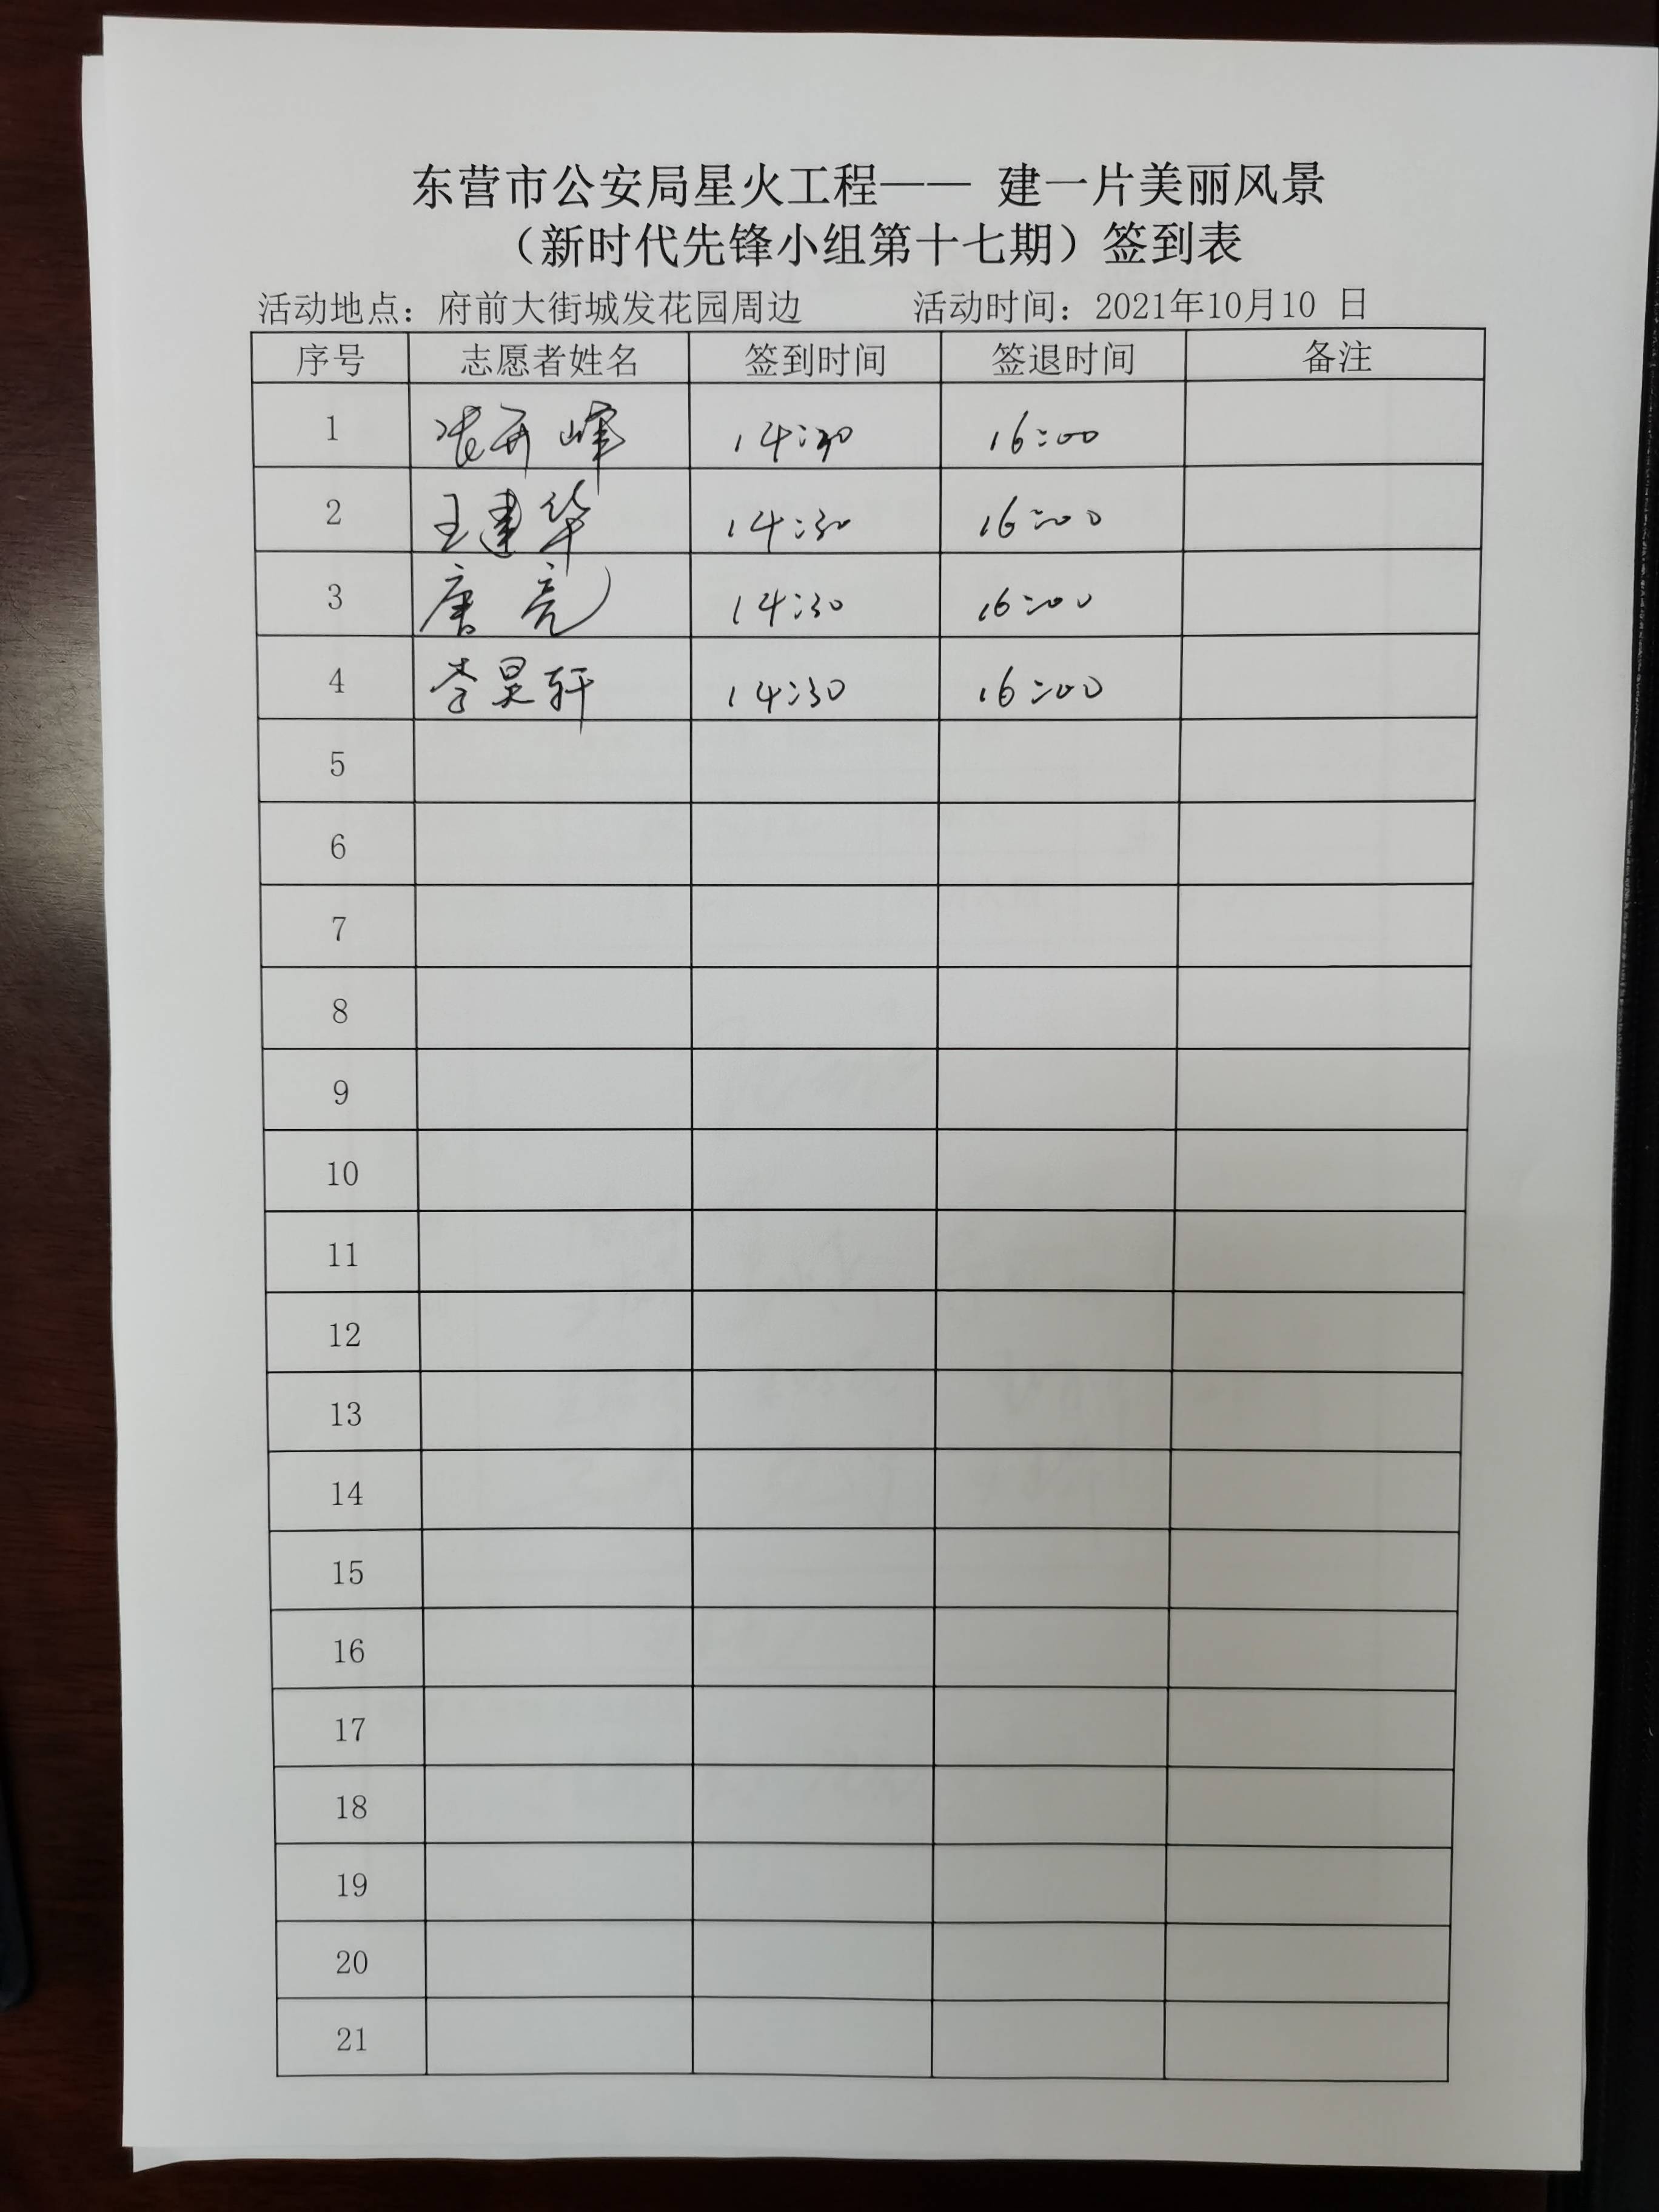 东营市公安局星火工程—— 建一片美丽风景
（新时代先锋小组第十七期）签到表
活动地点：府前大街城发花园周边 活动时间：2021年10月10 日
序号 志愿者姓名 签到时间 签退时间 备注
1 张开峰 14:30 16:00
2 王建华 14:30 16:00
3 唐亮 14:30 16:00
4 李昊轩 14:30 16:00
5
6
7
8
9
10
11
12
13
14
15
16
17
18
19
20
21